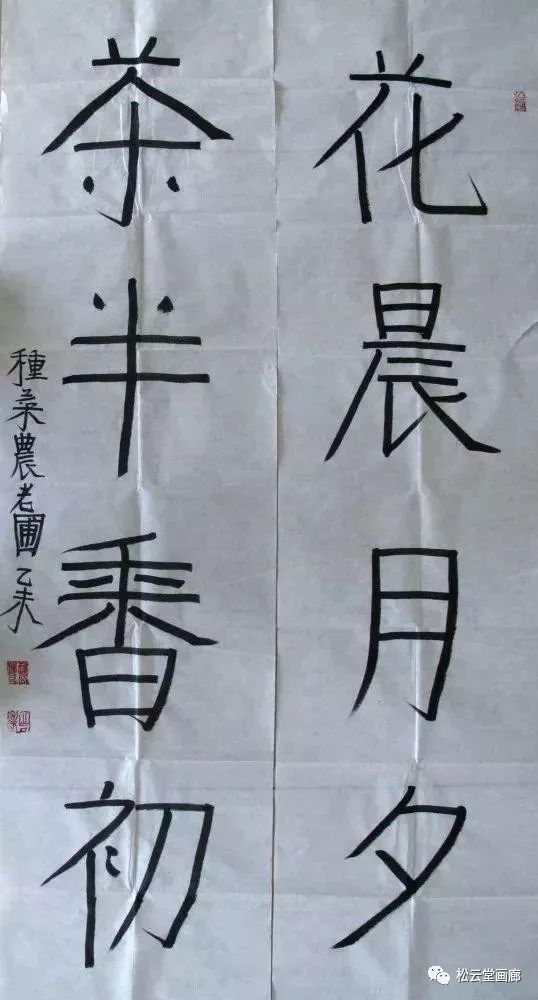 花晨月夕
茶半香初
種菜農老圃乙未
松云堂画廊